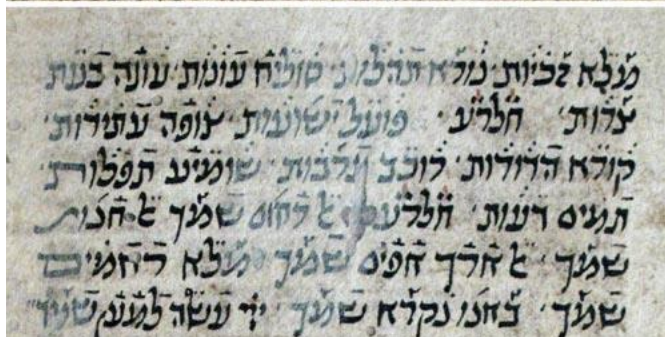 מלא זכיות · נורא תהלות · סולח עונות · עונה בעת
צרות · חטלרע פועל ישועות · צופה עתידות ·
קורא הדורות · רוכב ערבות · שומע תפלות ·
תמים דעות · חטלרע אל רחום שמך אל חנון
שמך · אל ארך אפים שמך מלא רחמים
שמך · נקרא שמך · יי עשה למען שמך